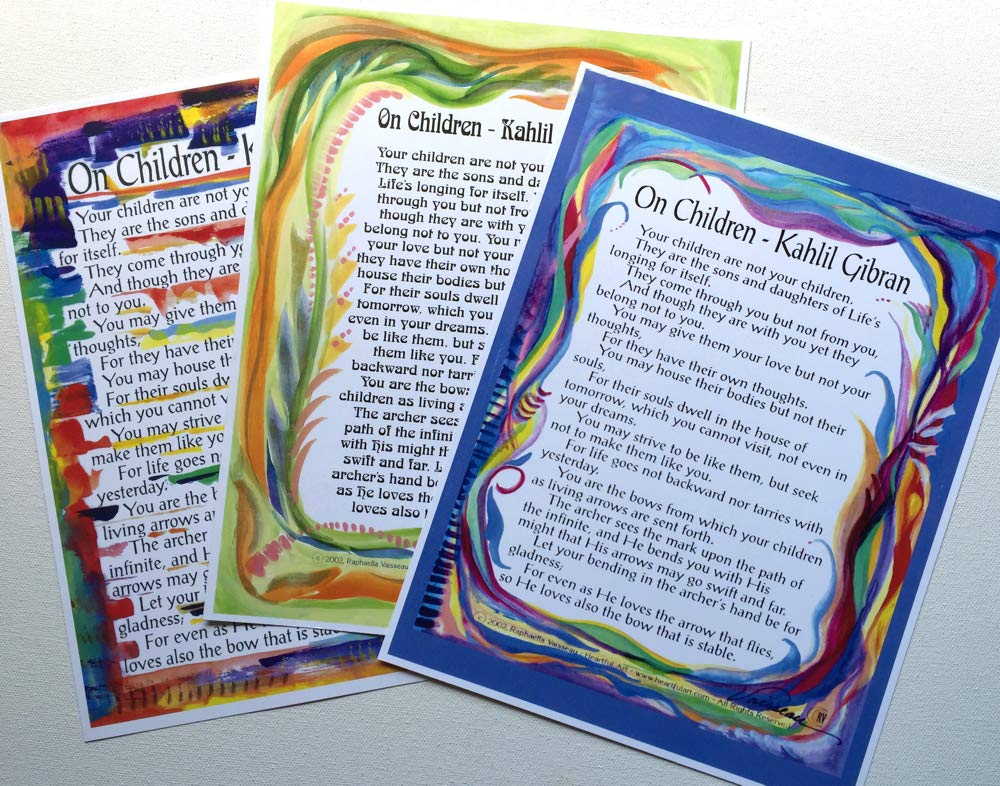 On Children - K
Your children are not yo
They are the sons and d
for itself.
They come through yo
And though they are
not to you.
You may give them
thoughts,
For they have their
You may house th
For their souls dw
which you cannot v
You may strive to
make them like yo
For life goes n
yesterday.
You are the b
living arrows a
The archer
infinite, and H
arrows may g
Let your b
gladness;
For even as He
loves also the bow that is stab
On Children - Kahlil
Your children are not you
They are the sons and da
Life's longing for itself.
through you but not fro
though they are with y
belong not to you. You m
your love but not your
they have their own tho
house their bodies but
For their souls dwell
tomorrow, which you
even in your dreams.
be like them, but s
them like you. F
backward nor tarrie
You are the bows
children as living a
The archer sees
path of the infini
with His might th
swift and far. L
archer's hand be
as He loves the
loves also t
(c) 2002, Raphaella Vaisseau
On Children - Kahlil Gibran
Your children are not your children.
They are the sons and daughters of Life's
longing for itself.
They come through you but not from you,
And though they are with you yet they
belong not to you.
You may give them your love but not your
thoughts,
For they have their own thoughts.
You may house their bodies but not their
souls,
For their souls dwell in the house of
tomorrow, which you cannot visit, not even in
your dreams.
You may strive to be like them, but seek
not to make them like you.
For life goes not backward nor tarries with
yesterday.
You are the bows from which your children
as living arrows are sent forth.
The archer sees the mark upon the path of
the infinite, and He bends you with His
might that His arrows may go swift and far.
Let your bending in the archer's hand be for
gladness;
For even as He loves the arrow that flies,
so He loves also the bow that is stable.
(c) 2002, Raphaella Vaisseau - Heartful Art - www.heartfulart.com - All Rights Reserved
Vaisseau
RV